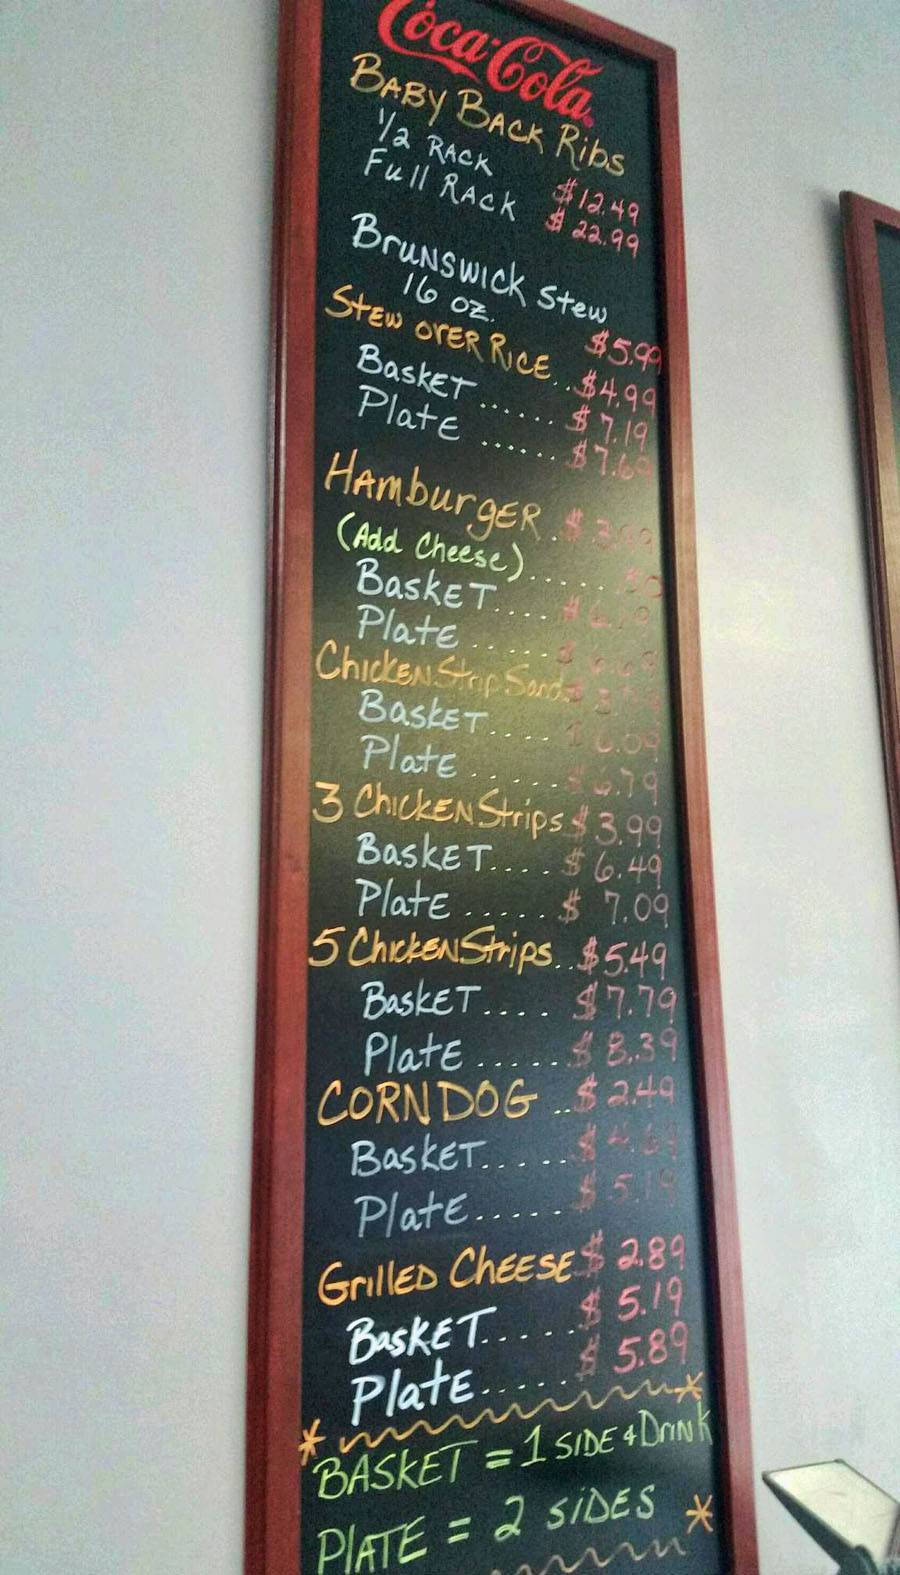 Coca-Cola
BABY BACK Ribs
1/2 RACK $12.49
Full RACK $22.99
BRUNSWICK Stew
16 oz. $5.99
STEW OVER RICE.. $4.99
BasKET ...... $7.19
PlatE ...... $7.69
HAmburgER .$
(Add Cheese)......50
BasKET.... $6.19
PlatE ..... $
ChickEN Strip Sand $
BasKET..... 6.09
PlatE ..... $6.79
3 ChickEN Strips $3.99
BasKET.... $6.49
PlatE ..... $7.09
5 ChickEN Strips.. $5.49
BasKET.... $7.79
PlatE ..... $8.39
CORN DOG ..$2.49
BasKET..... $
PlatE..... $5.19
GrillED CHEESE $2.89
BasKET..... $5.19
PlatE..... $5.89
BASKET = 1 SIDE & DrinK
PlATE = 2 SiDES